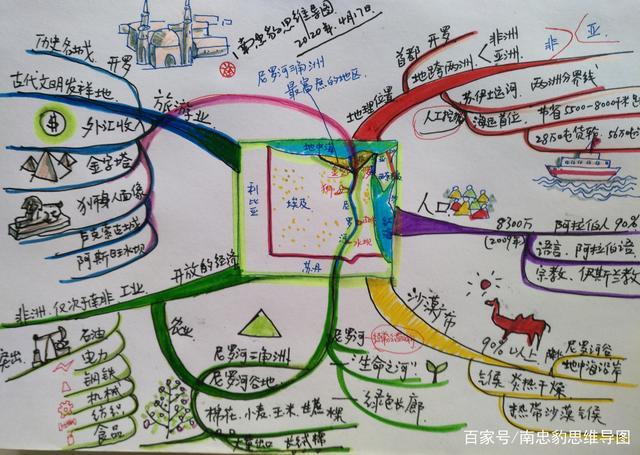 南忠豹思维导图
2020年4月17日
历史名城
开罗
古代文明发祥地
旅游业
外汇收入
金字塔
狮身人面像
卢克索古城
阿斯旺水坝
开放的经济
非洲,仅次于南非
工业
突出
石油
电力
钢铁
机械
纺织
食品
农业
尼罗河三角洲
尼罗河谷地
棉花、小麦、玉米、
长绒棉
尼罗河三角洲
最富庶的地区
地中海
利比亚
埃及
苏丹
尼罗河
"生命之河"
绿色长廊
首都
开罗
地理位置
地跨两洲
非洲
亚洲
非
亚
苏伊士运河
两洲分界线
人工挖掘
节省5500-8000千米
28万吨货轮
人口
8300万
(2009年)
阿拉伯人90%
语言、阿拉伯语
宗教、伊斯兰教
沙漠广布
90%以上
尼罗河谷
地中海沿岸
气候
炎热干燥
热带沙漠气候
百家号/南忠豹思维导图